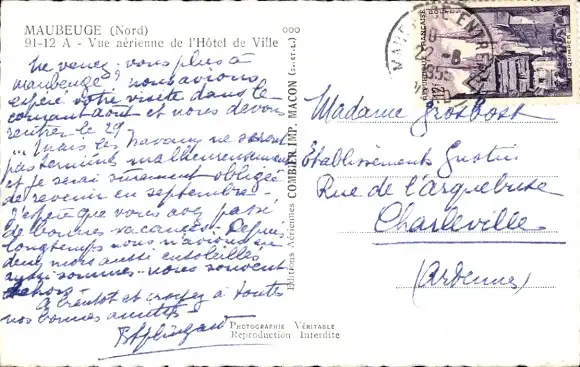 MAUBEUGE (Nord)
91-12 A - Vue aérienne de l'Hôtel de Ville
Ne venez-vous plus à
Maubeuge? nous avions
espéré votre visite dans le
courant août et nous devons
rentrer le 29
... Mais les travaux ne seront
pas terminés malheureusement
et je serai sûrement obligée
de revenir en septembre.
J'espère que vous avez passé
de bonnes vacances - Depuis
longtemps nous n'avions eu
deux mois aussi ensoleillés
aussi sommes-nous souvent
dehors -
A bientôt et croyez à toutes
nos bonnes amitiés
Editions Aériennes COMBIER IMP. MACON (S.-et-L.)
PHOTOGRAPHIE VÉRITABLE
Reproduction Interdite
MAUBEUGE
22-8
1955
Madame Grosbost
Etablissements
Rue de l'Arquebuse
Charleville
(Ardennes)